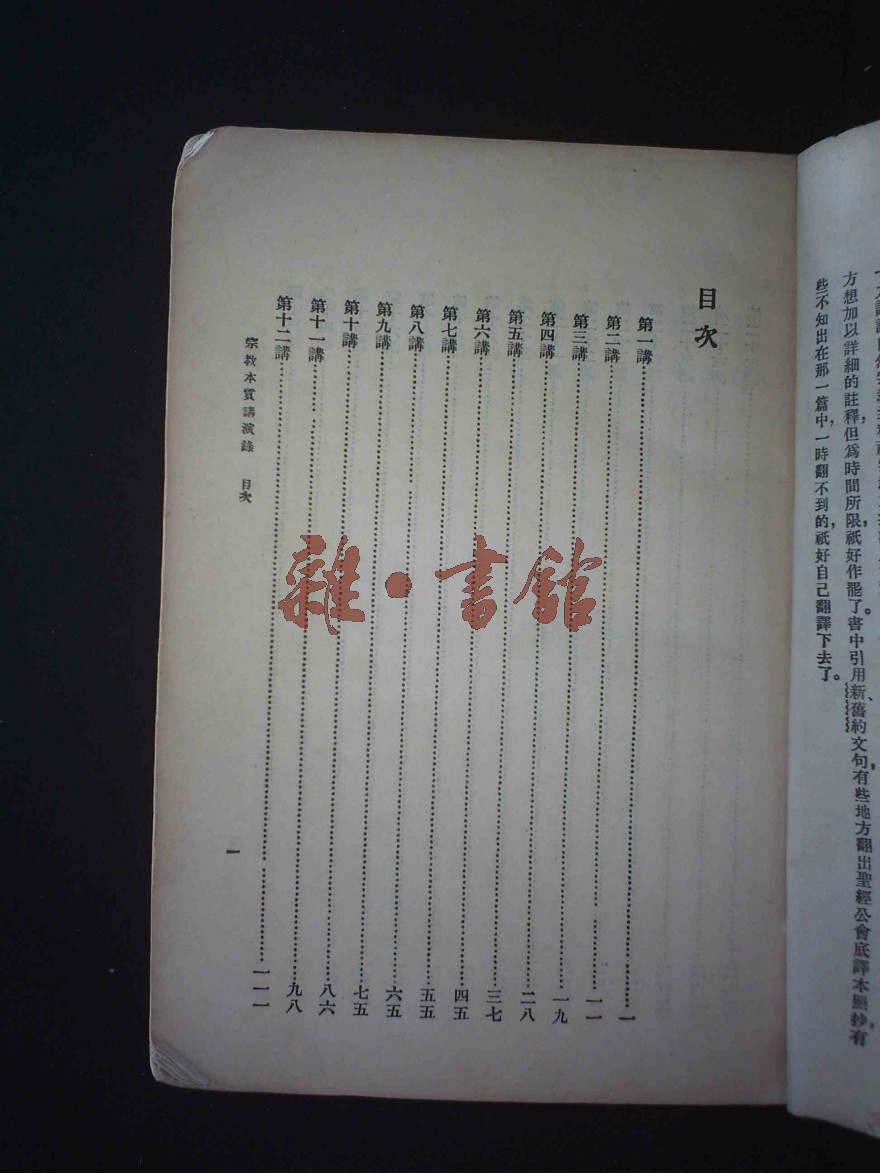 方想加以詳細的註釋,但爲時間所限,祇好作罷了。書中引用新、舊約文句,有些地方翻出聖經公會底譯本照抄,有
些不知出在那一篇中,一時翻不到的,祇好自己翻譯下去了。
目次
第一講……一
第二講……一一
第三講……一九
第四講……二八
第五講……三七
第六講……四五
第七講……五五
第八講……六五
第九講……七五
第十講……八六
第十一講……九八
第十二講……一一一
宗教本質講演錄 目次
一
雜·書館